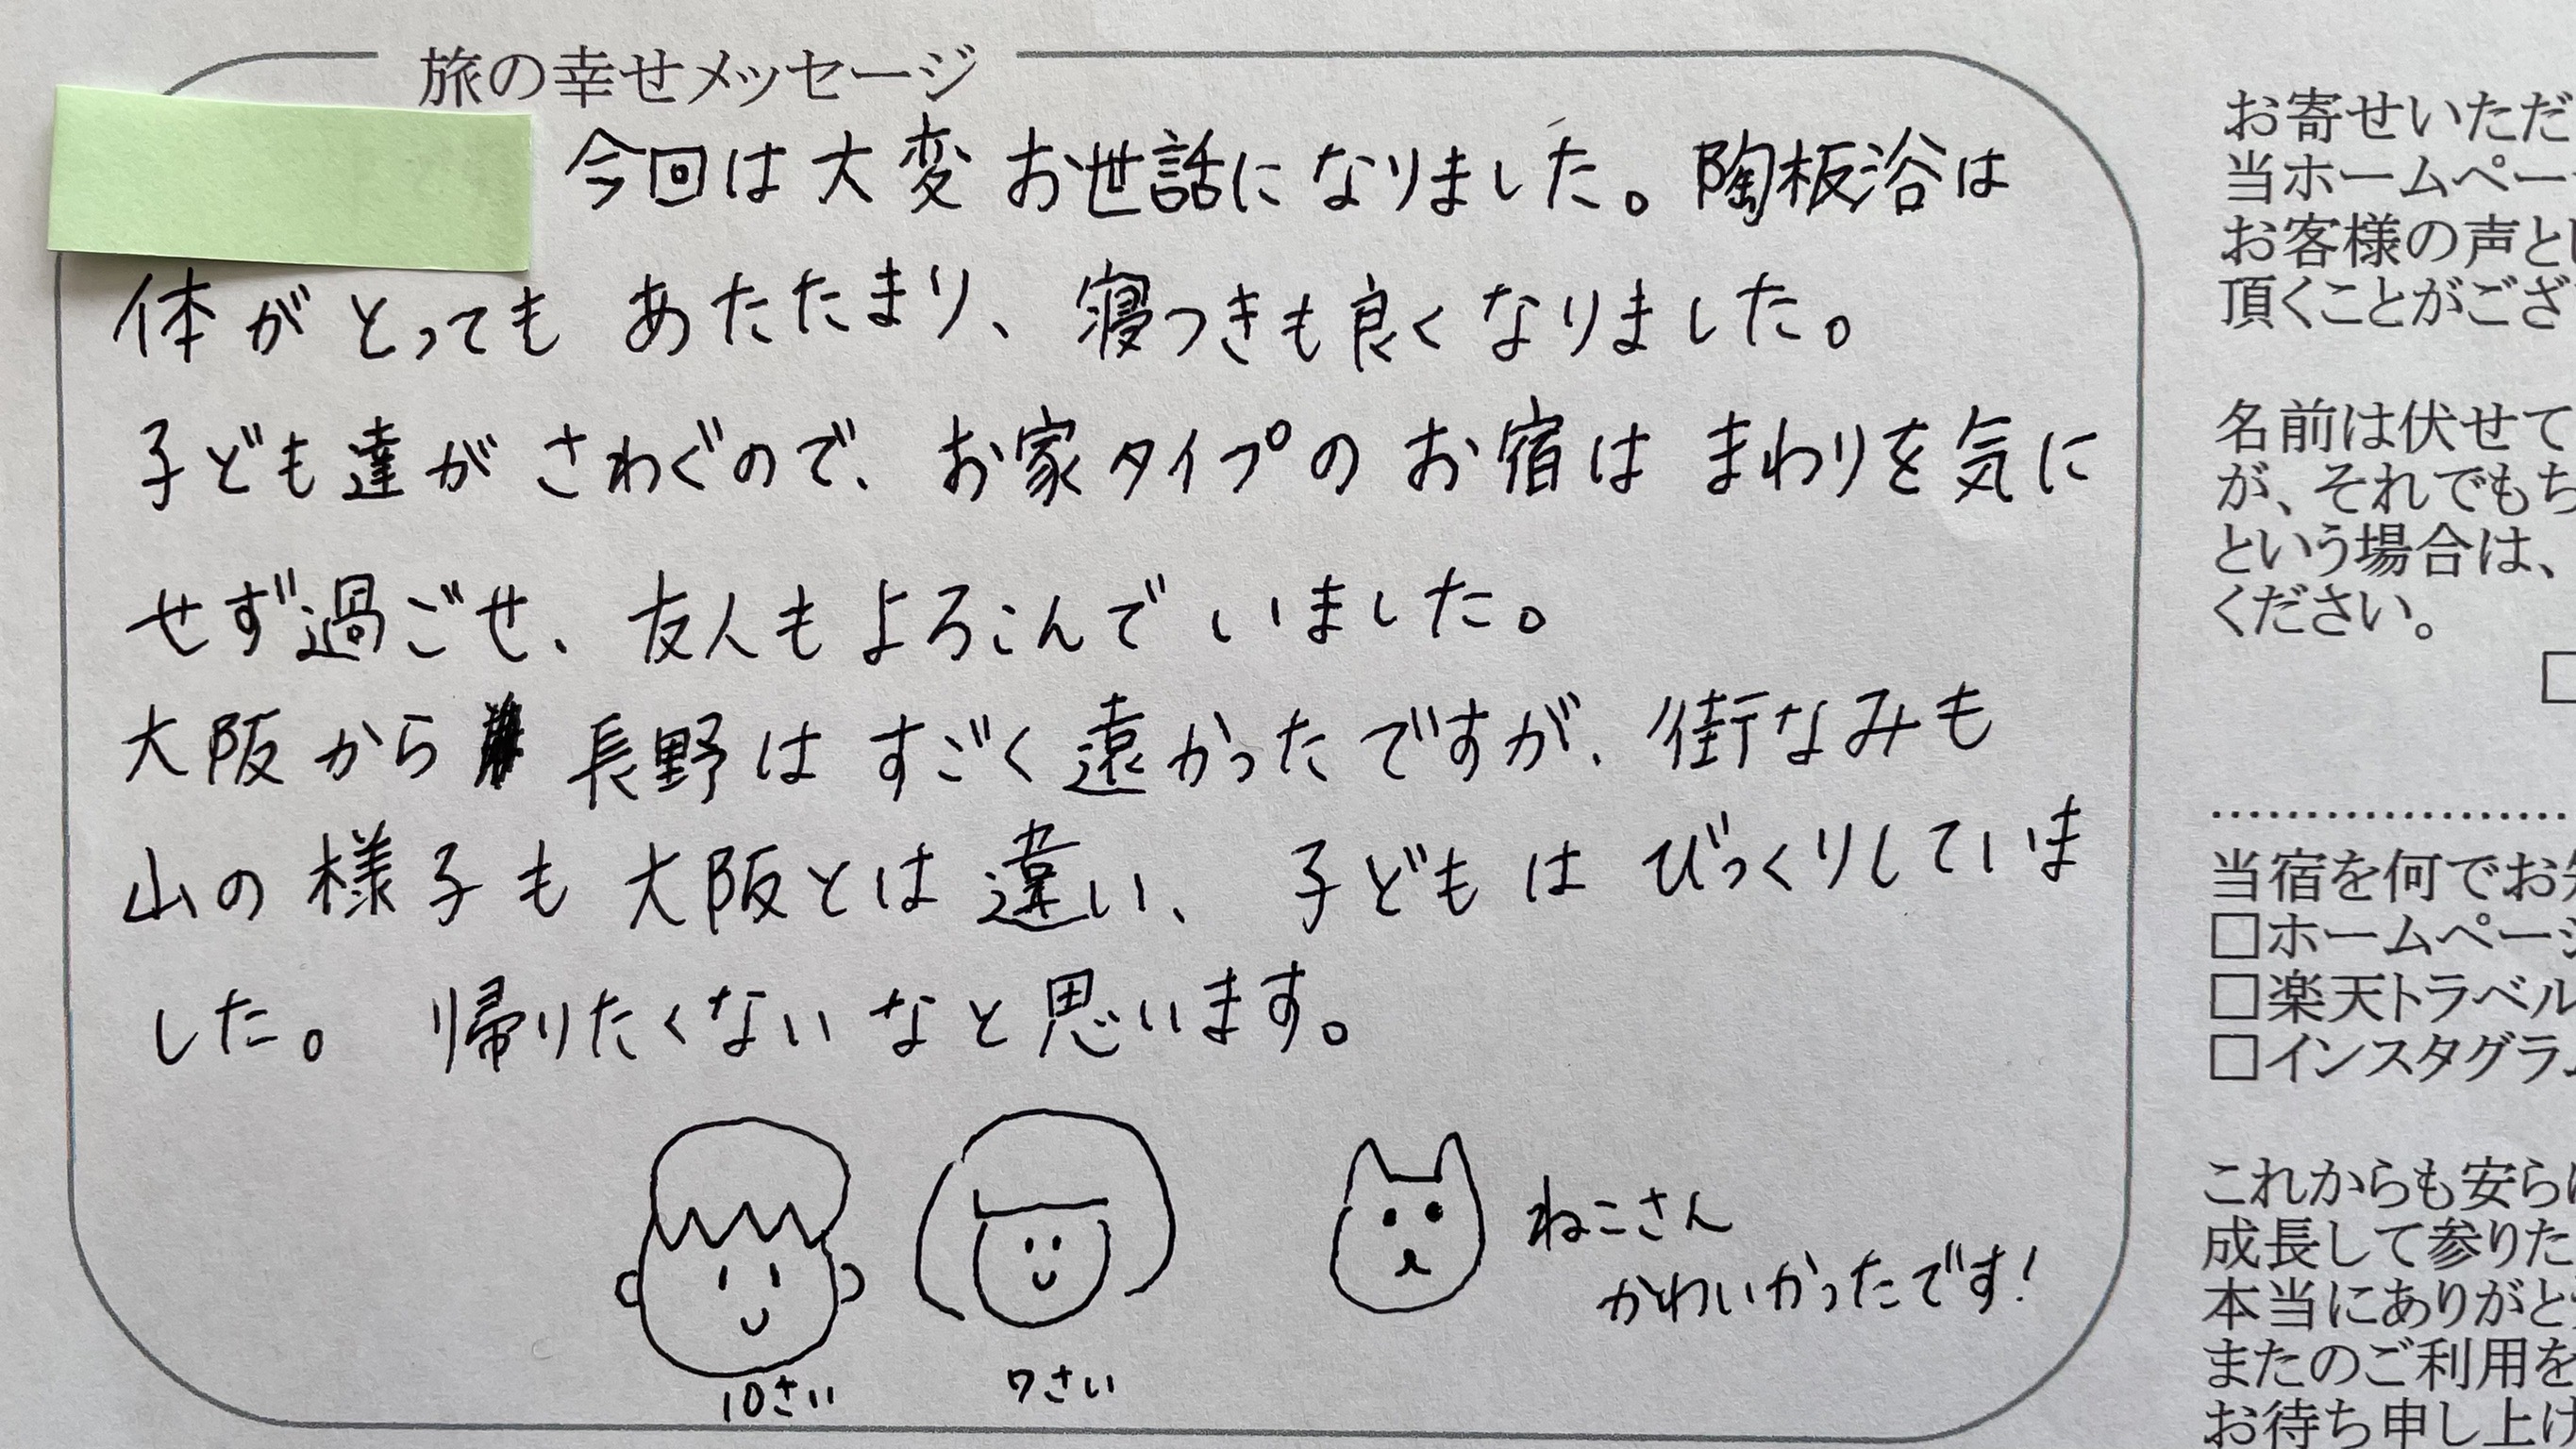 旅の幸せメッセージ
今回は大変お世話になりました。陶板浴は
体がとってもあたたまり、寝つきも良くなりました。
子ども達がさわぐので、お家タイプのお宿はまわりを気に
せず過ごせ、友人もよろこんでいました。
大阪から長野はすごく遠かったですが、街なみも
山の様子も大阪とは違い、子どもはびっくりしていま
した。帰りたくないなと思います。
ねこさん
かわいかったです!
10さい
7さい
お寄せいただ
当ホームペー
お客様の声と
頂くことがござ
名前は伏せて
が、それでもち
という場合は、
ください。
当宿を何でお
□ホームページ
□楽天トラベル
□インスタグラ
これからも安ら
成長して参りた
本当にありがと
またのご利用を
お待ち申し上げ